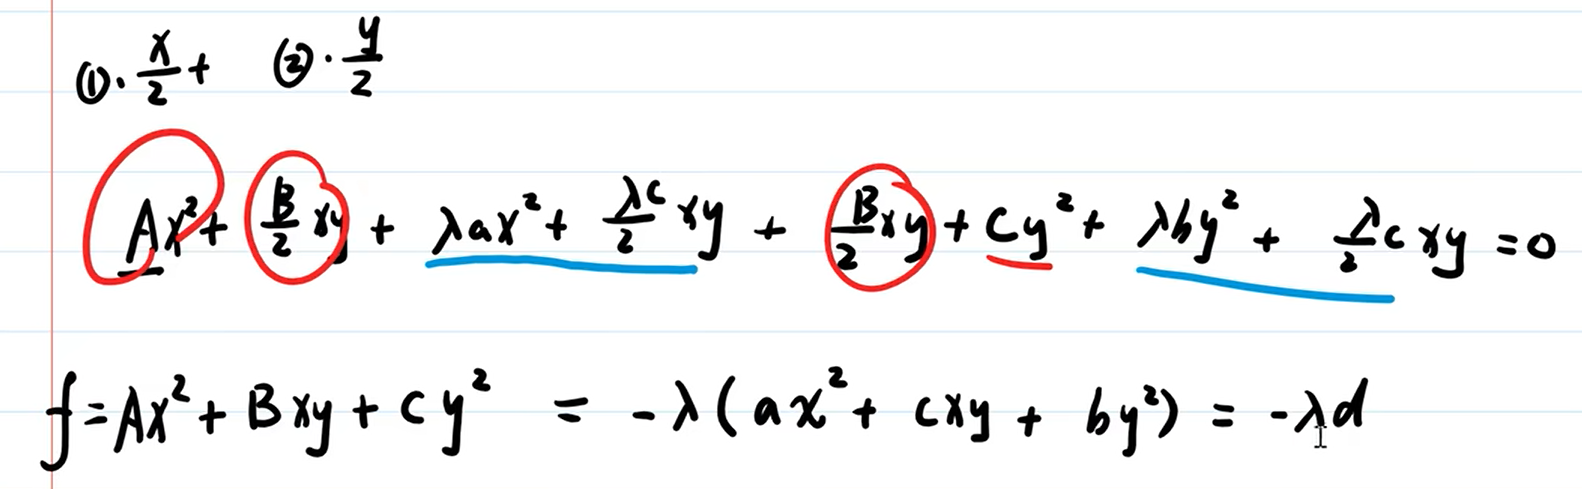 ①·x/2 + ②·y/2
Ax² + B/2 xy + λax² + λc/2 xy + B/2 xy + Cy² + λby² + λ/2 cxy = 0
f = Ax² + Bxy + Cy² = -λ(ax² + cxy + by²) = -λd